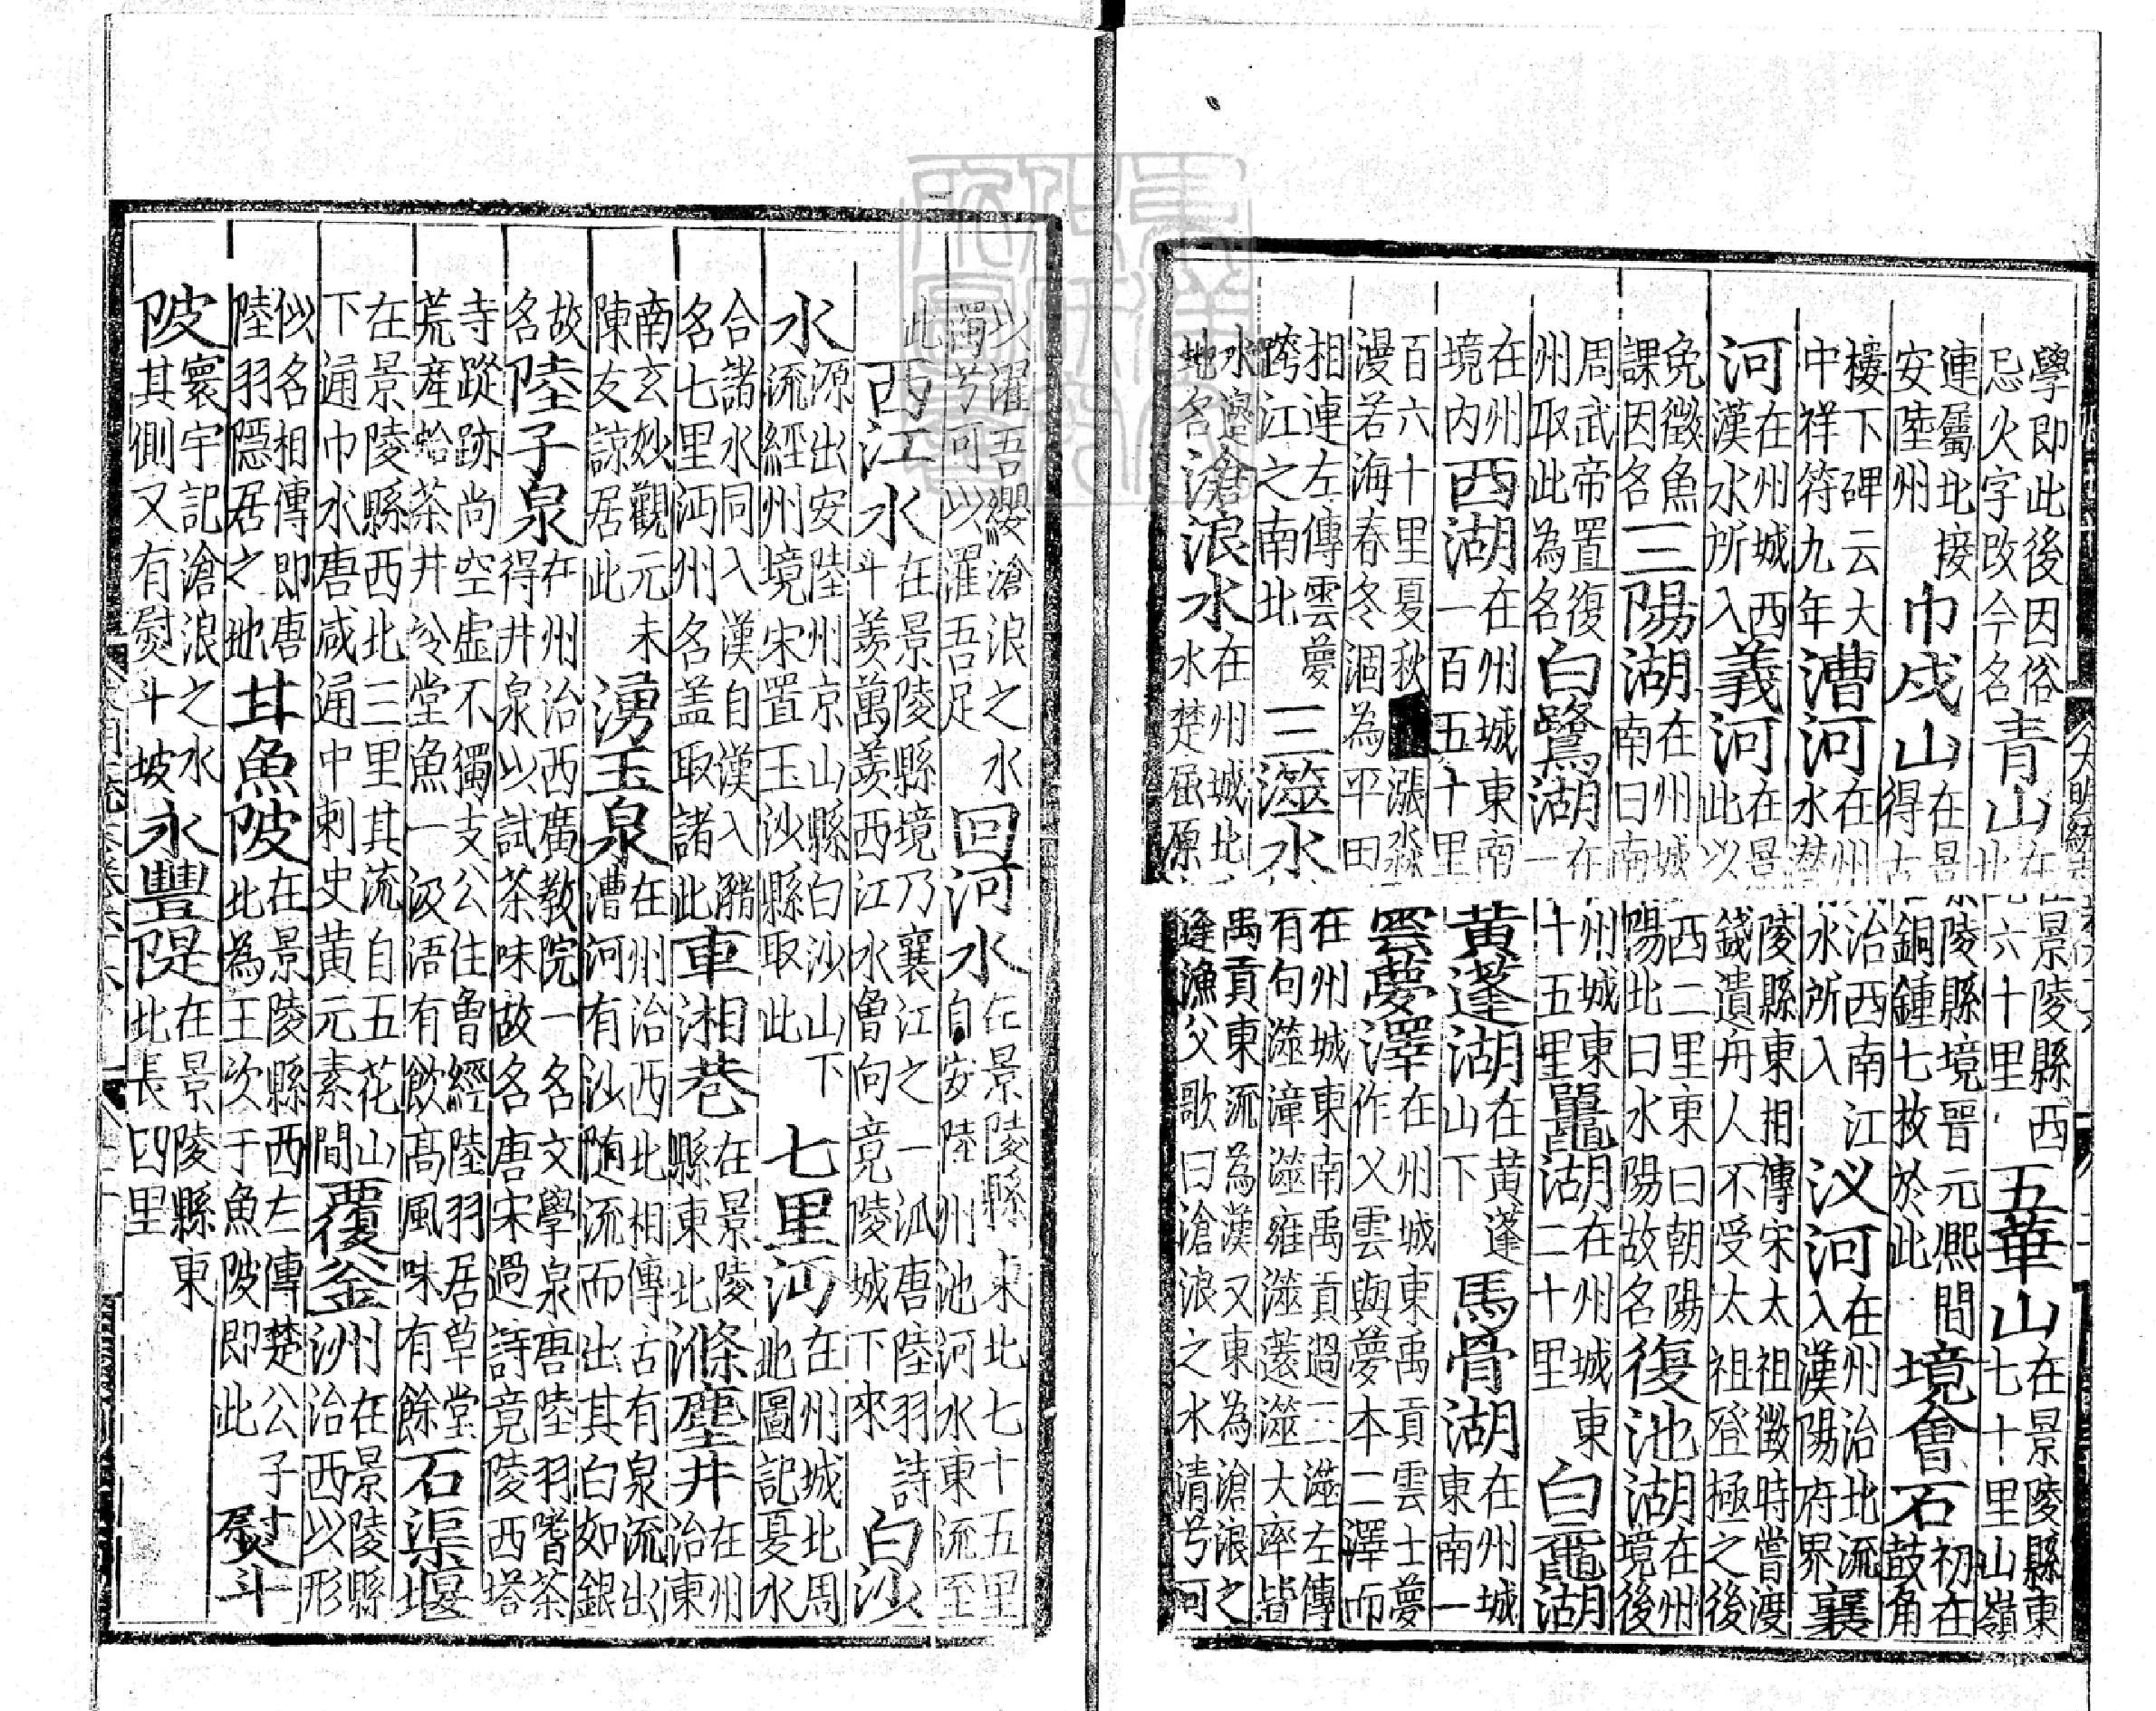 學即此後因俗忌火字改今名青山在景陵縣西北六十里五華山在景陵縣東七十里山嶺
連屬北接安陸州巾戍山在景陵縣境晉元熈間得古銅鍾七枚於此境會石初在鼓角
樓下碑云大中祥符九年漕河在州治西南江水水所入汊河在州治北流入漢陽府界襄
河在州城西漢水所入義河在景陵縣東相傳宋太祖徵時嘗渡此以錢遺舟人不受太祖登極之後
免徵魚課因名三陽湖在州城西二里東曰朝陽南曰南陽北曰水陽故名復池湖在州境後
周武帝置復州取此為名白鷺湖在州城東一十五里鼉湖在州城東二十里白黿湖
在州境内西湖在州城東南一百五十里黃蓬湖在黃蓬山下馬骨湖在州城東南一
百六十里夏秋漲淼漫若海春冬涸為平田雲夢澤在州城東禹貢雲土夢作乂雲與夢本二澤而
相連左傳雲夢跨江之南北三澨水在州城東南禹貢過三澨左傳有句澨漳澨雍澨薳澨大率皆
水邊地名滄浪水在州城北禹貢東流為漢又東為滄浪之水楚屈原逢漁父歌曰滄浪之水清兮可
以濯吾纓滄浪之水濁兮可以濯吾足回河水在景陵縣東北七十五里自安陸州池河水東流至
此西江水在景陵縣境乃襄江之一派唐陸羽詩斗羡萬羡西江水曾向竟陵城下來白沙
水源出安陸州京山縣白沙山下流經州境宋置玉沙縣取此七里沔在州城北周地圖記夏水
合諸水同入漢自漢入潛名七里沔州名盖取諸此車湘巷在景陵縣東北滌塵井在州治東
南玄妙觀元末陳友諒居此湧玉泉在州治西北相傳古有泉流出漕河有沙随流而出其白如銀
故名陸子泉在州治西廣教院一名文學泉唐陸羽嗜茶得井泉以試茶味故名唐宋過詩竟陵西塔
寺蹤跡尚空虛不獨支公住曾經陸羽居草堂荒産蛤茶井冷堂魚一汲浯有飲高風味有餘石渠堰
在景陵縣西北三里其流自五花山下通巾水唐咸通中刺史黃元素間覆釜洲在景陵縣治西以形
似名相傳即唐陸羽隱居之地甘魚陂在景陵縣西左傳楚公子比為王次于魚陂即此熨斗
陂寰宇記滄浪之水水其側又有熨斗坡永豐隄在景陵縣東北長四里